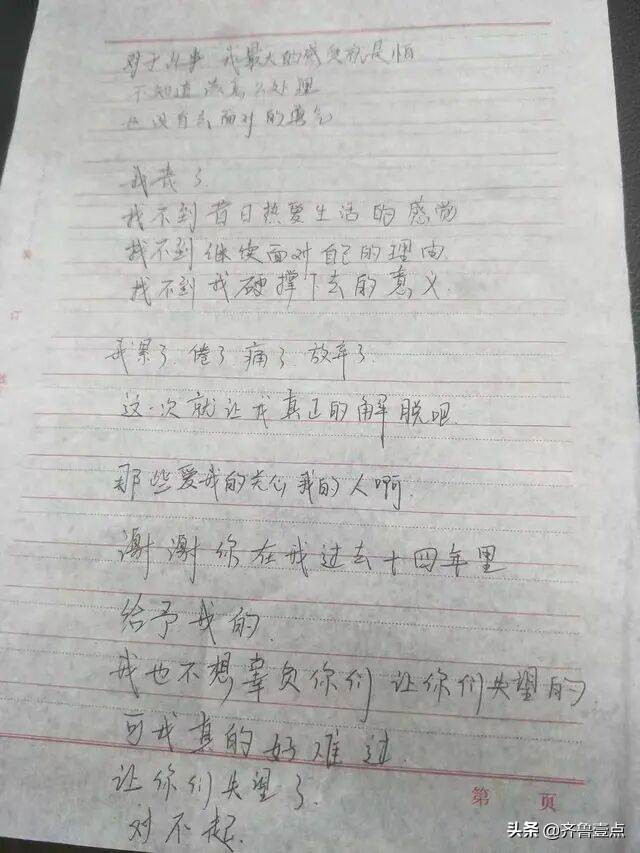 对于此事 我最大的感受就是怕
不知道该怎么处理
也没有去面对的勇气
我丧了
找不到昔日热爱生活的感觉
找不到继续面对自己的理由
找不到我硬撑下去的意义
我累了 倦了 痛了 放弃了
这一次就让我真正的解脱吧
那些爱我的关心我的人啊
谢谢你在我过去十四年里
给予我的
我也不想辜负你们 让你们失望的
可我真的好难过
让你们失望了
对不起
第 页
头条 @齐鲁壹点